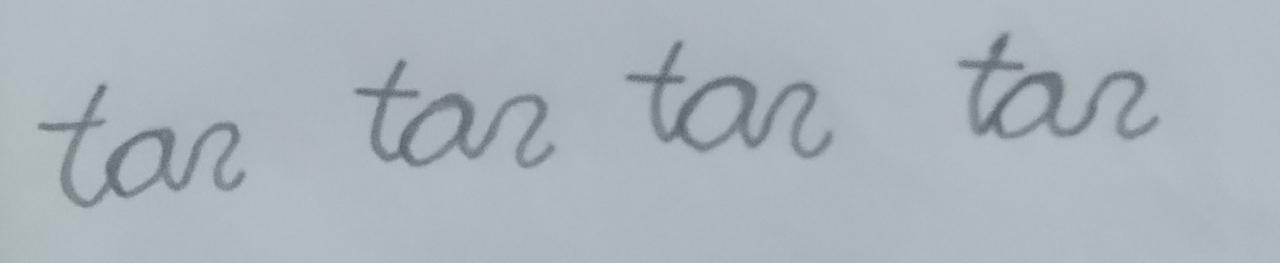 tar tar tar tar